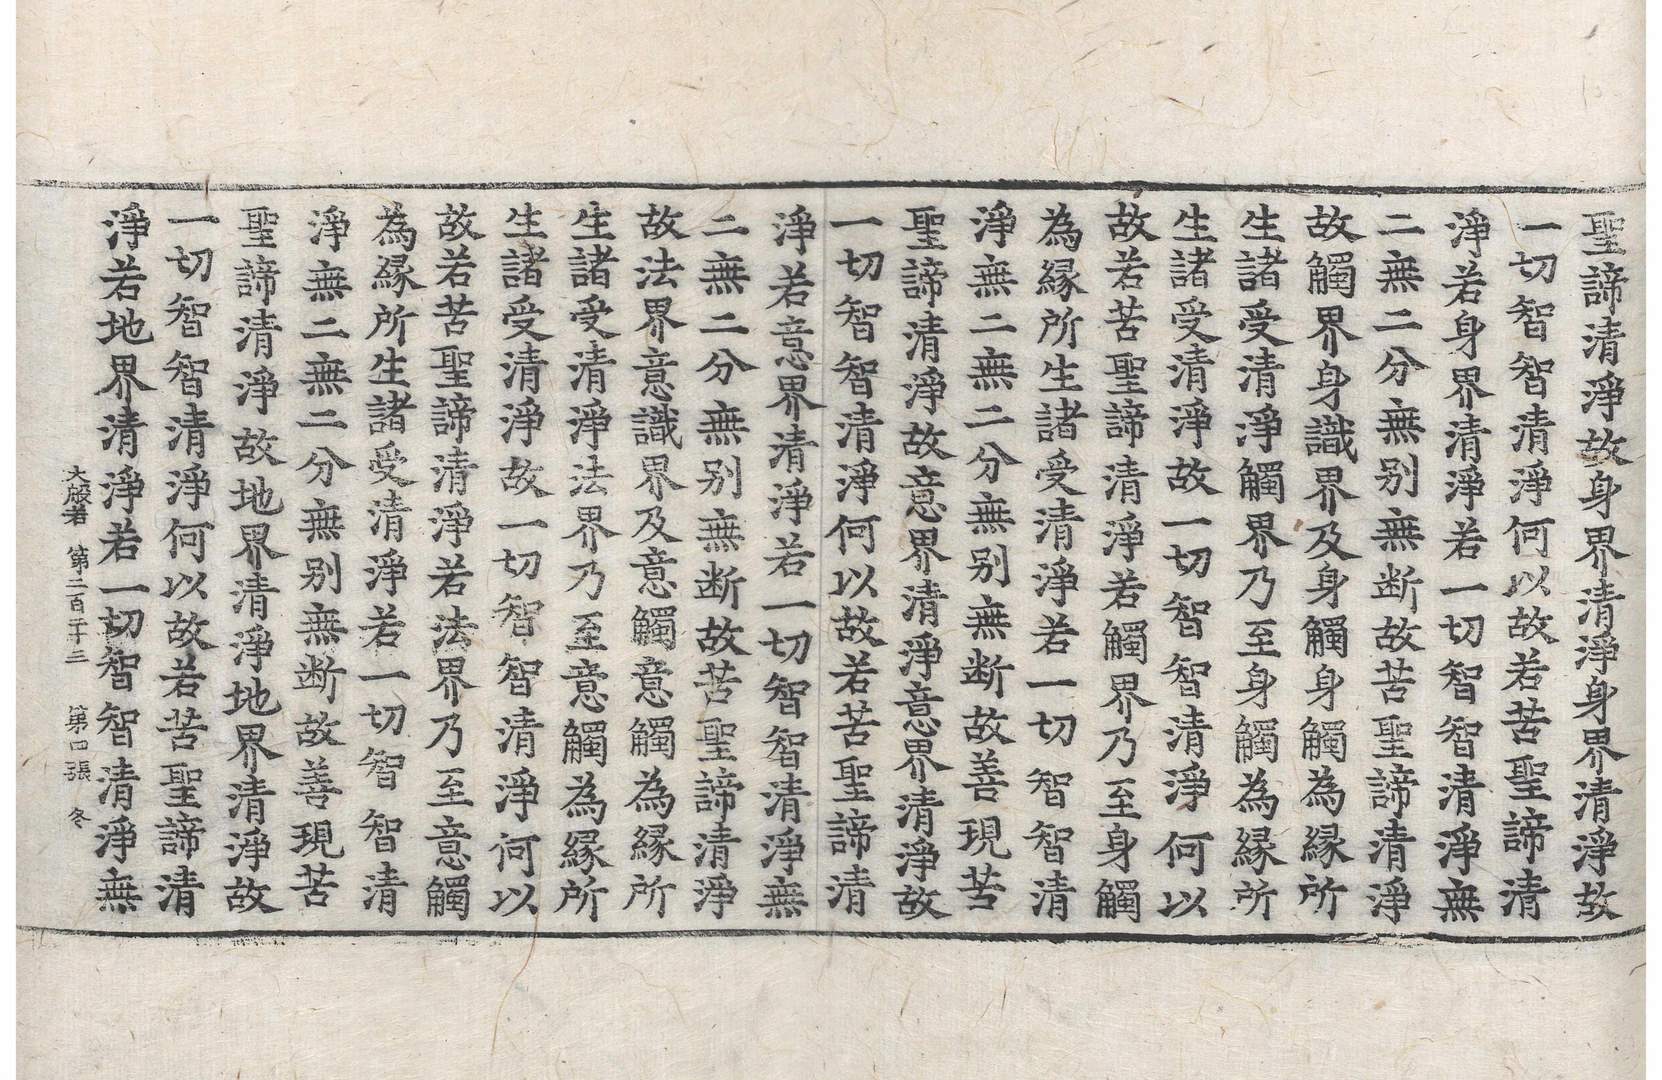 聖諦清淨故身界清淨身界清淨故
一切智智清淨何以故若苦聖諦清
淨若身界清淨若一切智智清淨無
二無二分無别無断故苦聖諦清淨
故觸界身識界及身觸身觸為縁所
生諸受清淨觸界乃至身觸為縁所
生諸受清淨故一切智智清淨何以
故若苦聖諦清淨若觸界乃至身觸
為縁所生諸受清淨若一切智智清
淨無二無二分無别無断故善現苦
聖諦清淨故意界清淨意界清淨故
一切智智清淨何以故若苦聖諦清
淨若意界清淨若一切智智清淨無
二無二分無别無断故苦聖諦清淨
故法界意識界及意觸意觸為縁所
生諸受清淨法界乃至意觸為縁所
生諸受清淨故一切智智清淨何以
故若苦聖諦清淨若法界乃至意觸
為縁所生諸受清淨若一切智智清
淨無二無二分無别無断故善現苦
聖諦清淨故地界清淨地界清淨故
一切智智清淨何以故若苦聖諦清
淨若地界清淨若一切智智清淨無
大般若 第二百一十三 第四張 冬